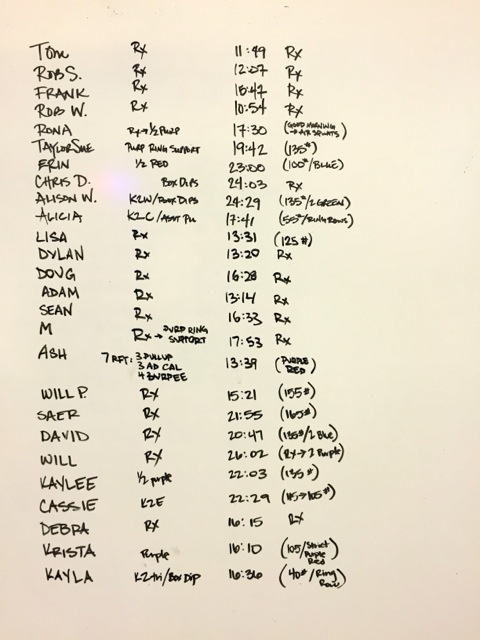 Tom Rx 11:49 Rx
Rob S. Rx 12:07 Rx
Frank Rx 18:47 Rx
Rob W. Rx 10:54 Rx
Rona Rx → 1/2 Purp 17:30 (Good Morning → Air Squats)
TaylorSue Purp Ring Support 19:42 (135#)
Erin 1/2 Red 23:00 (100#/Blue)
Chris D. Box Dips 24:03 Rx
Alison W. K2W/Box Dips 24:29 (135#/2 Green)
Alicia K2C/Asst Pu 17:41 (55#/Ring Rows)
Lisa Rx 13:31 (125#)
Dylan Rx 13:20 Rx
Doug Rx 16:28 Rx
Adam Rx 13:14 Rx
Sean Rx 16:33 Rx
M Rx → Purp Ring Support 17:53 Rx
Ash 7 RFT: 3 Pullup 13:39 (Purple
3 AD Cal Red)
4 Burpee
Will P. Rx 15:21 (155#)
Saer Rx 21:55 (165#)
David Rx 20:47 (135#/2 Blue)
Will Rx 26:02 (Rx → 2 Purple)
Kaylee 1/2 purple 22:03 (135#)
Cassie K2E 22:29 (115→105#)
Debra Rx 16:15 Rx
Krista Purple 16:10 (105/Strict Purple Red)
Kayla K2tri/Box Dip 16:36 (40#/Ring Row)